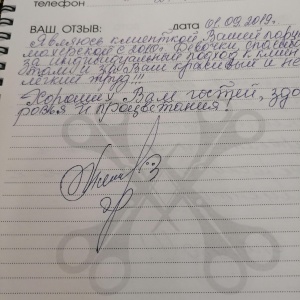 телефон
ВАШ ОТЗЫВ: дата 01.09.2019г.
Я являюсь клиенткой Вашей парик
махерской с 2010г. Девочки, спасибо
за индивидуальный подход к клиен
там и за Ваш красивый и не
легкий труд!!!
Хороших Вам гостей, здо
ровья и процветания!